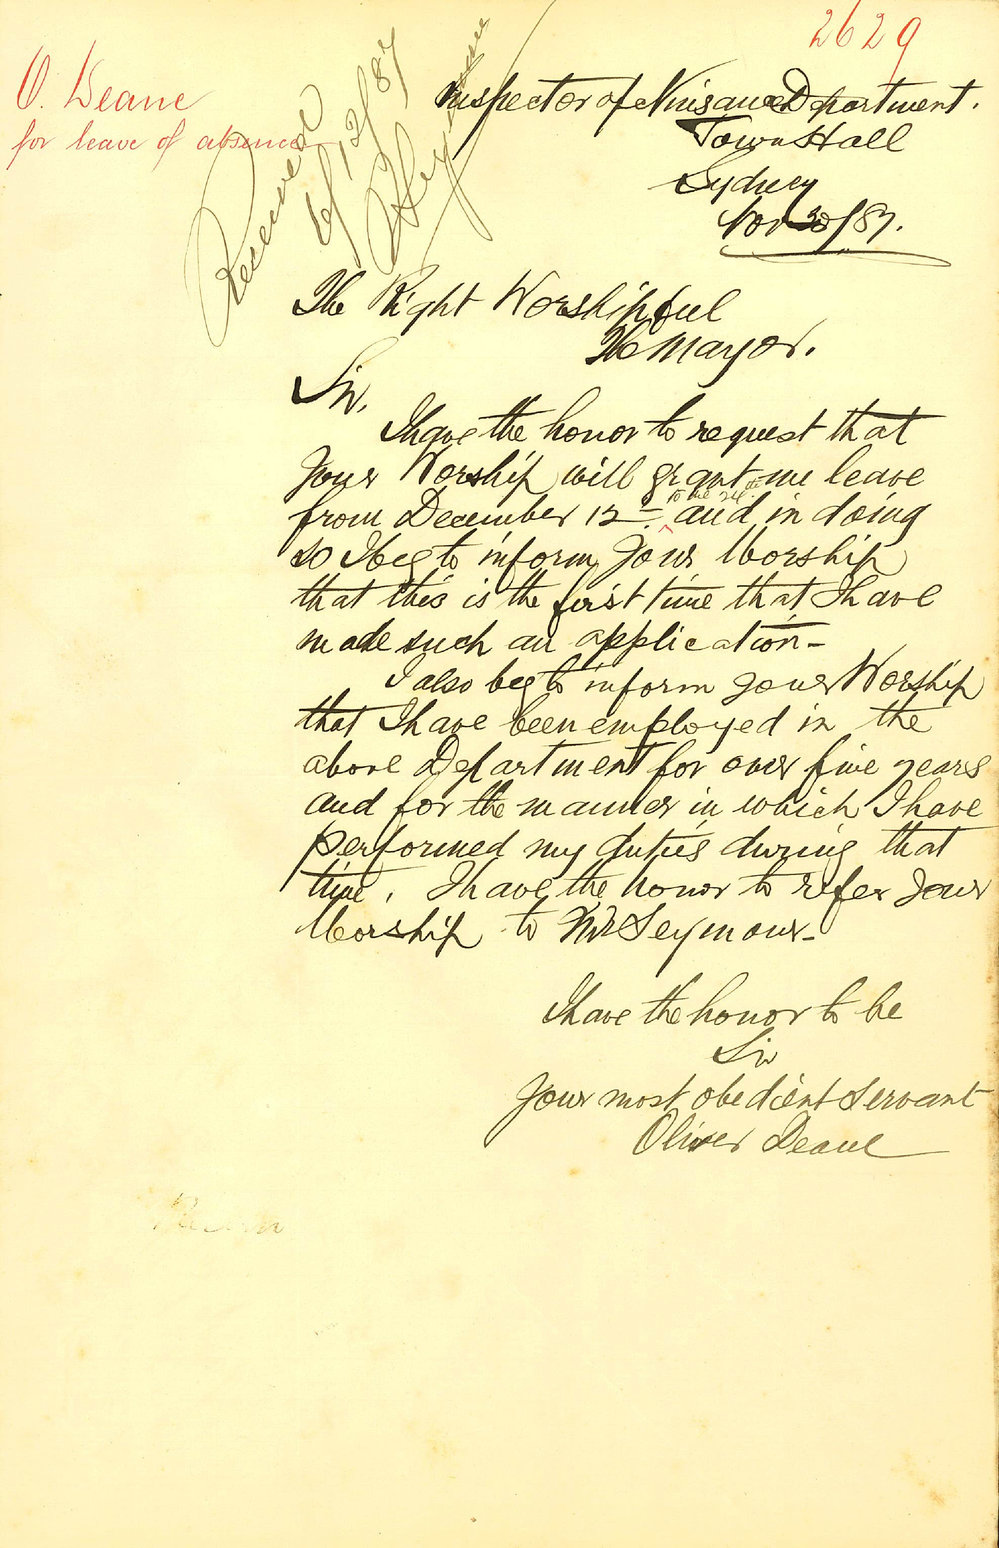 2629
O. Deane
for leave of absence
Received
6/12/87
RSeymour
Inspector of Nuisances Department.
Town Hall
Sydney
Nov 30/87.
The Right Worshipful
The Mayor.
Sir,
I have the honor to request that
Your Worship will grant me leave
to the 24th
from December 12th and in doing
so I beg to inform Your Worship
that this is the first time that I have
made such an application–
I also beg to inform your Worship
that I have been employed in the
above Department for over five years
and for the manner in which I have
performed my duties during that
time. I have the honor to refer Your
Worship to Mr Seymour–
I have the honor to be
Sir
Your most obedient Servant
Oliver Deane